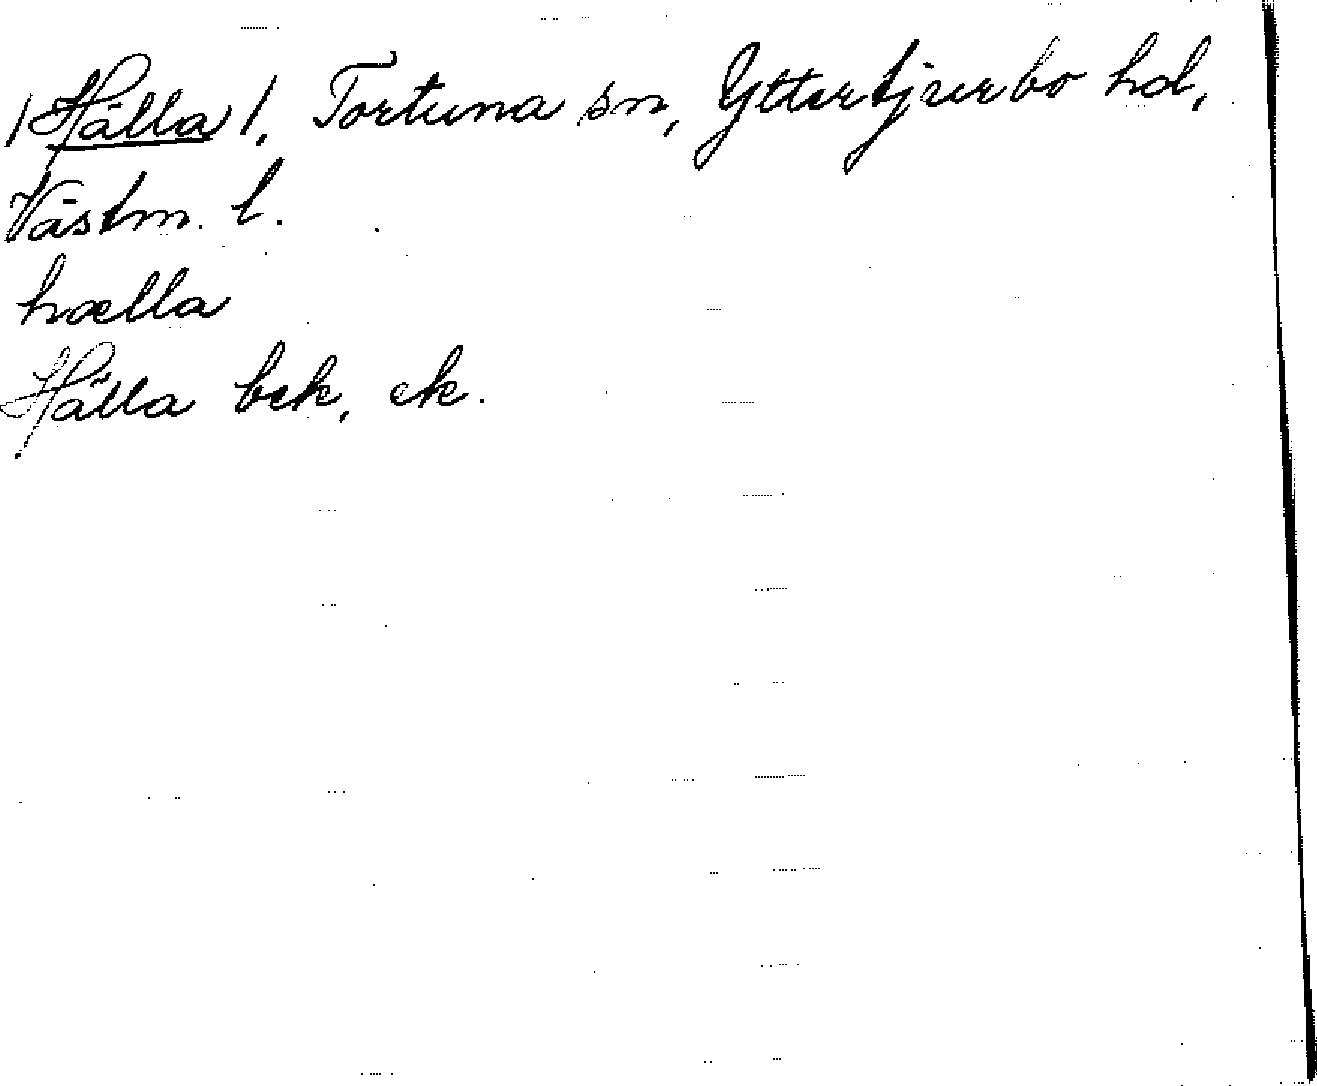 /Hälla/, Tortuna sn, Yttertjurbo hd,
Västm. l.
hælla
Hälla bek, ek.